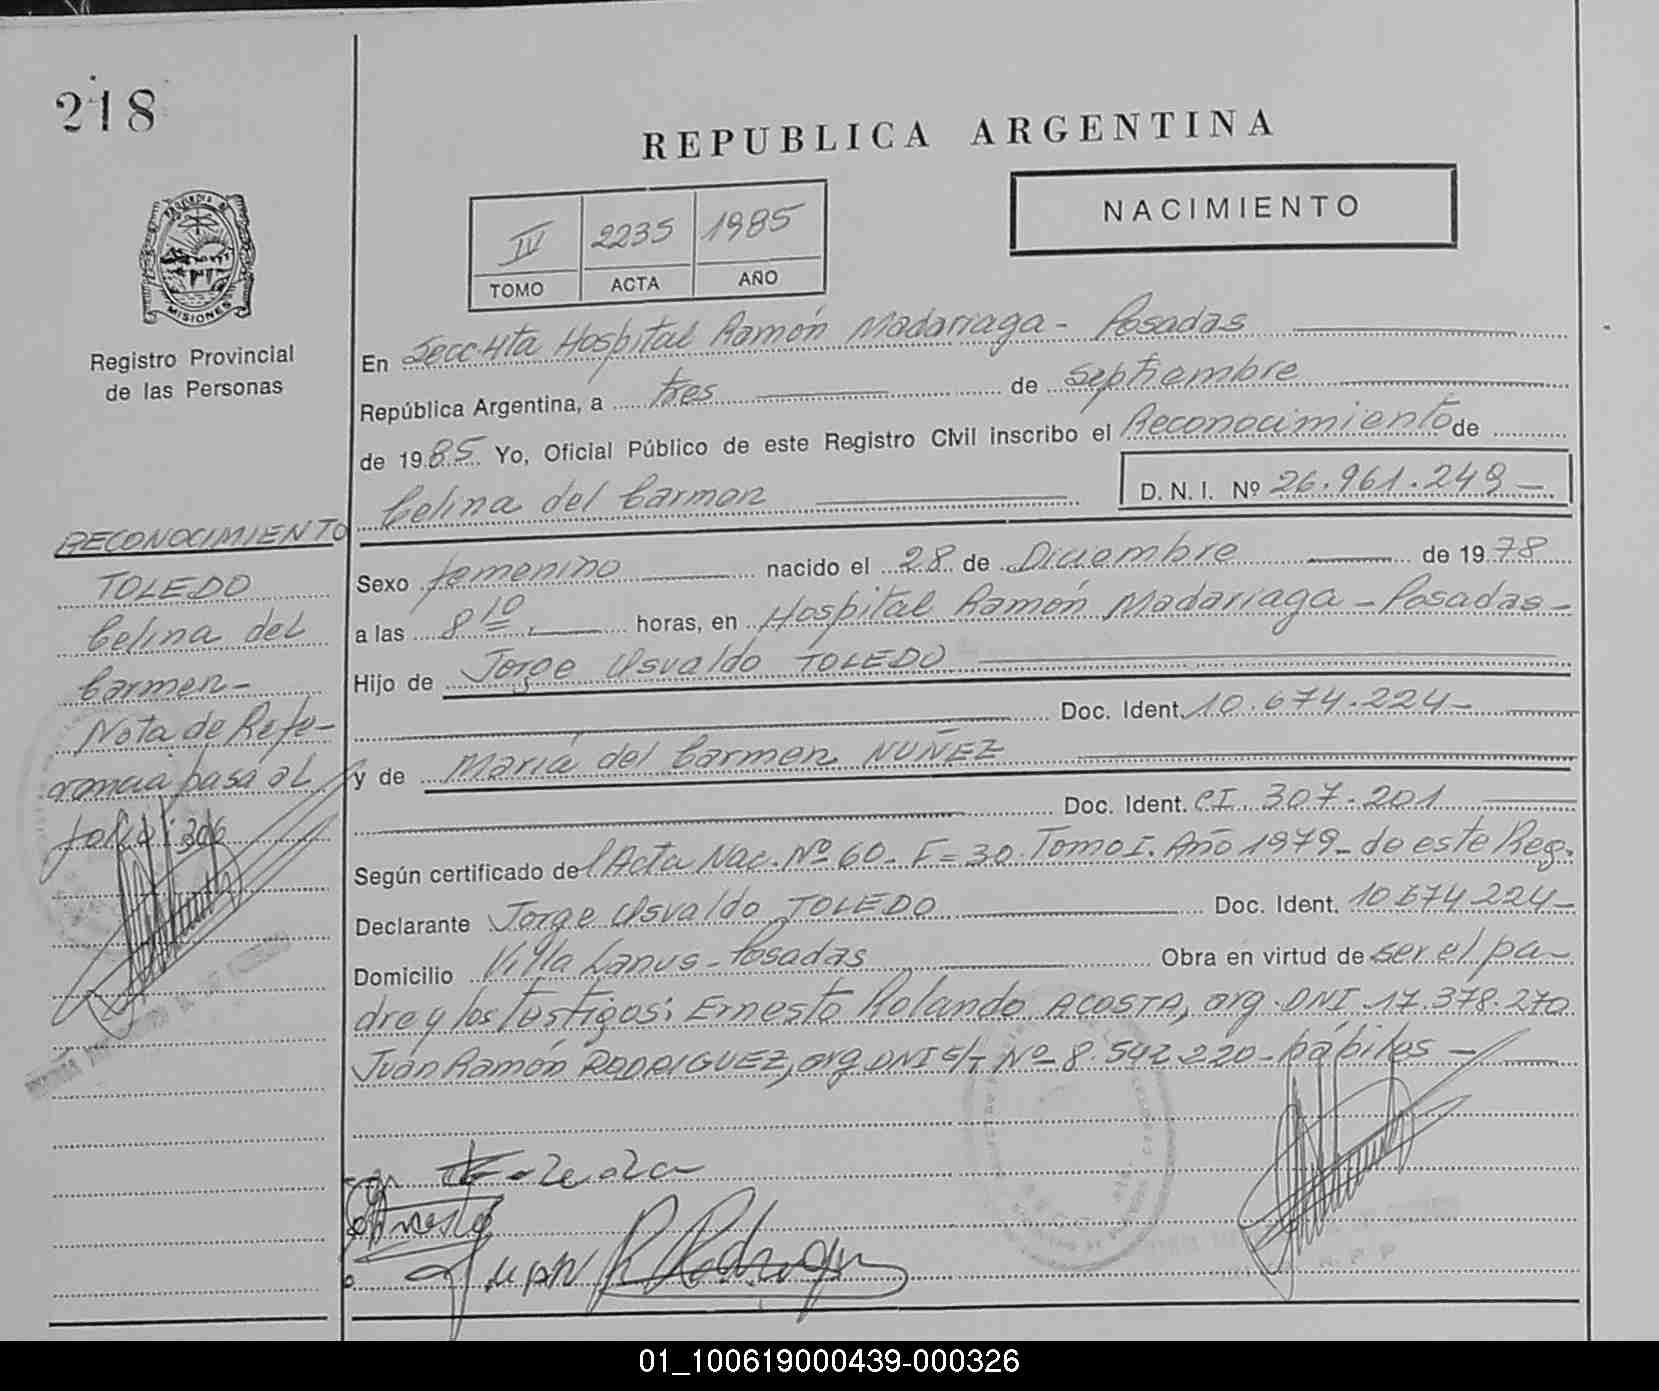 218
REPUBLICA ARGENTINA
NACIMIENTO
IV 2235 1985
TOMO ACTA AÑO
MISIONES
Registro Provincial
de las Personas
En Secc 4ta Hospital Ramón Madariaga - Posadas
República Argentina, a tres de Septiembre
de 1985 Yo, Oficial Público de este Registro Civil inscribo el Reconocimiento de
Celina del Carmen D. N. I. Nº 26.961.249 -
RECONOCIMIENTO
TOLEDO
Celina del
Carmen -
Nota de Refe-
rencia pasa al
folio 306
Sexo femenino nacido el 28 de Diciembre de 1978
a las 8 10 horas, en Hospital Ramón Madariaga - Posadas -
Hijo de Jorge Osvaldo TOLEDO
Doc. Ident. 10.674.224 -
y de María del Carmen NUÑEZ
Doc. Ident. CI. 307.201
Según certificado del Acta Nac. Nº 60 - F = 30. Tomo I. Año 1979 - de este Reg.
Declarante Jorge Osvaldo TOLEDO Doc. Ident. 10.674.224 -
Domicilio Villa Lanus - Posadas Obra en virtud de ser el pa-
dre y los testigos; Ernesto Rolando ACOSTA, arg. DNI. 17.378.270
Juan Ramón RODRIGUEZ, arg. DNI s/t Nº 8.542.220 - hábiles -
Ernesto
Juan R Rodriguez
01_100619000439-000326